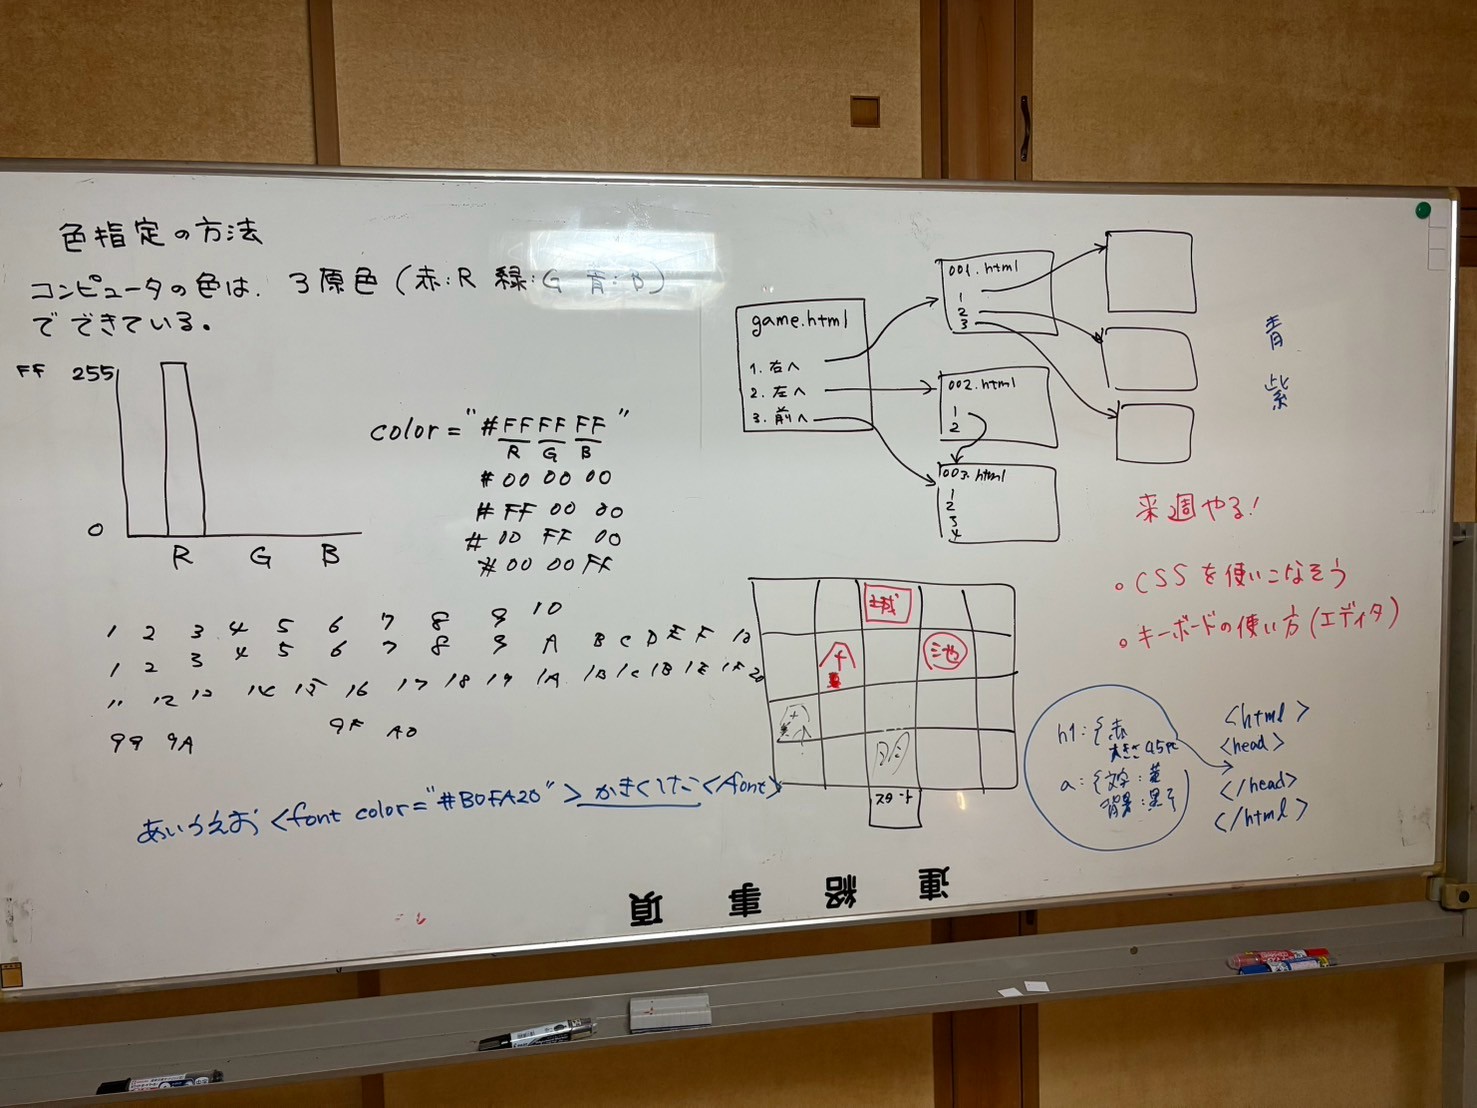 色指定の方法
コンピュータの色は、3原色(赤:R 緑:G 青:B)
でできている。
FF 255
0
R G B
color="#FFFFFF"
R G B
#00 00 00
#FF 00 00
#00 FF 00
#00 00 FF
1 2 3 4 5 6 7 8 9 10
1 2 3 4 5 6 7 8 9 A B C D E F 10
11 12 13 14 15 16 17 18 19 1A 1B 1C 1D 1E 1F 20
99 9A 9F A0
あいうえお<font color="#B0FA20">かきくけこ</font>
game.html
1. 右へ
2. 左へ
3. 前へ
001.html
1
2
3
002.html
1
2
003.html
1
2
3
4
青
紫
来週やる!
。CSSを使いこなそう
。キーボードの使い方(エディタ)
城
池
スタート
h1:{赤
大きさ
a:{文字:黄
背景:黒}
<html>
<head>
</head>
</html>
連絡事項